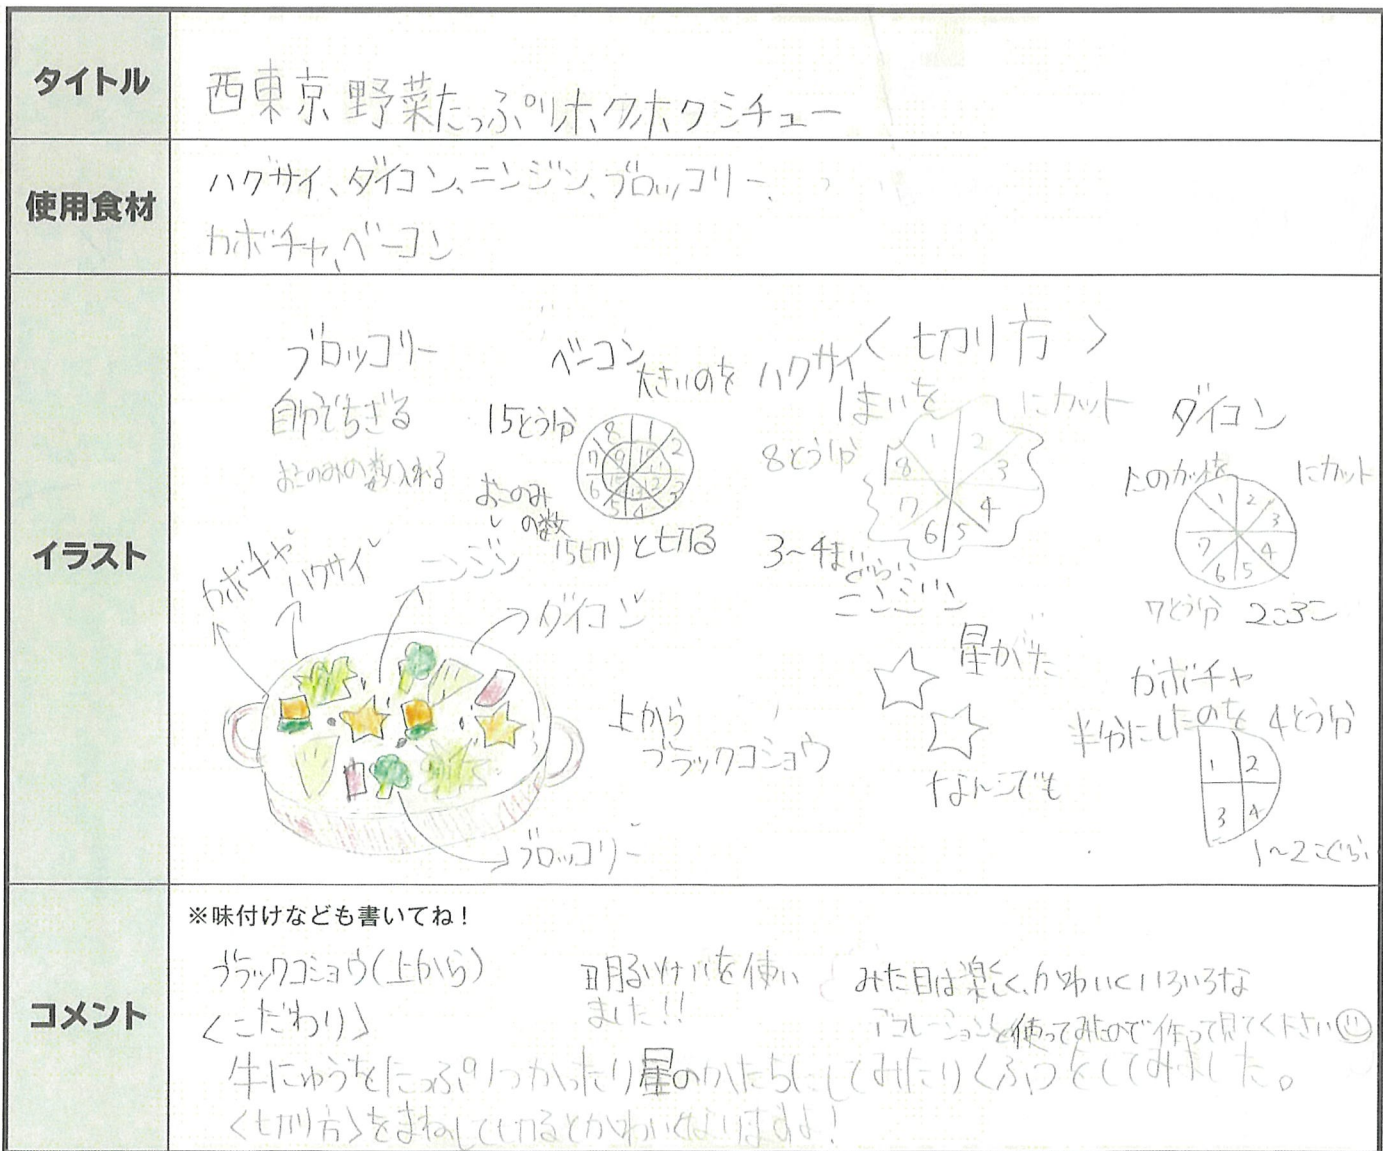 タイトル
西東京野菜たっぷりホクホクシチュー
使用食材
ハクサイ、ダイコン、ニンジン、ブロッコリー、
カボチャ、ベーコン
イラスト
〈切り方〉
ブロッコリー
自分でちぎる
おこのみの数入れる
ベーコン
大きいのを
15とう分
8 1 2 3 4 5 6 7
おこのみ
の数
15切りと切る
ハクサイ
1まいを
にカット
8とう分
1 2 3 4 5 6 7 8
3〜4まい
ぐらい
ダイコン
にカット
1 2 3 4 5 6 7
7とう分 2こ3こ
ニンジン
星がた
なんこでも
カボチャ
半分にしたのを4とう分
1 2
3 4
1〜2こぐらい
カボチャ
ハクサイ
ニンジン
ダイコン
ブロッコリー
上から
ブラックコショウ
コメント
※味付けなども書いてね!
ブラックコショウ(上から)
〈こだわり〉
を使い
ました!!
みた目は楽しく、かわいくいろいろな
使ってみたので作って見てください
牛にゅうをたっぷりつかったり星のかたちにしてみたりくふうをしてみました。
〈切り方〉をまねして切るとかわいくなりますよ!